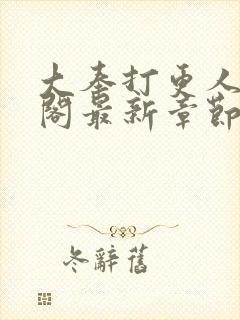 大奉打更人
閣最新章節
冬辭舊